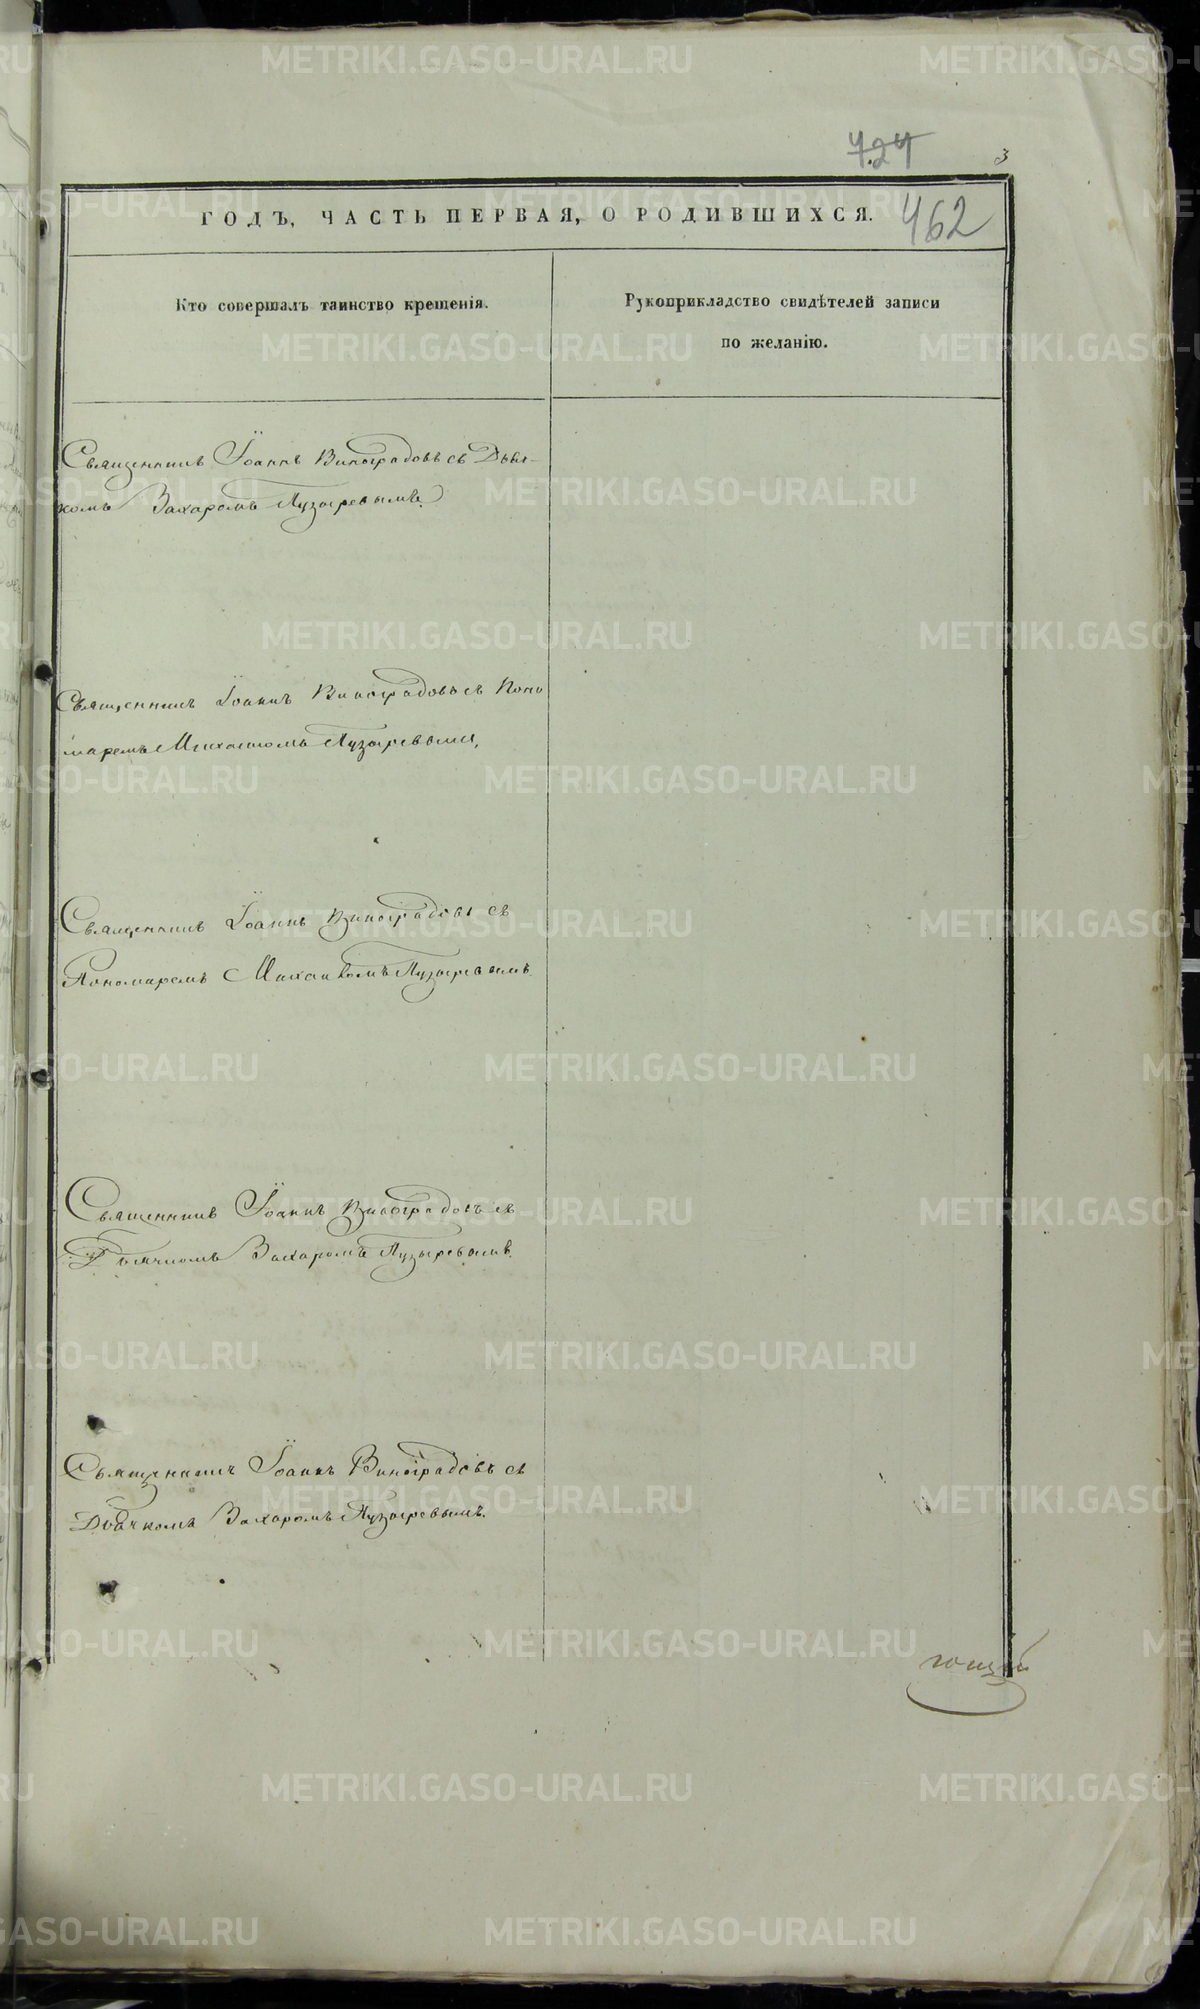 727
3
462
ГОДЪ, ЧАСТЬ ПЕРВАЯ, О РОДИВШИХСЯ.
Кто совершалъ таинство крещенія.
Рукоприкладство свидѣтелей записи
по желанію.
Священникъ Іоаннъ Виноградовъ съ Дьяч-
комъ Захаромъ Пузыревымъ.
Священникъ Іоаннъ Виноградовъ съ Поно
маремъ Михаиломъ Пузыревымъ,
Священникъ Іоаннъ Виноградовъ съ
Пономаремъ Михаиломъ Пузыревымъ.
Священникъ Іоаннъ Виноградовъ съ
Дьячкомъ Захаромъ Пузыревымъ.
Священникъ Іоаннъ Виноградовъ съ
Дьячкомъ Захаромъ Пузыревымъ.
METRIKI.GASO-URAL.RU